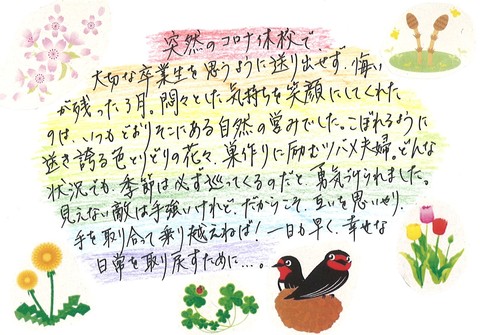 突然のコロナ休校で、
大切な卒業生を思うように送り出せず、悔い
が残った3月。悶々とした気持ちを笑顔にしてくれた
のは、いつもどおりそこにある自然の営みでした。こぼれるように
咲き誇る色とりどりの花々、巣作りに励むツバメ夫婦。どんな
状況でも、季節は必ず巡ってくるのだと、勇気づけられました。
見えない敵は手強いけれど、だからこそ、互いを思いやり、
手を取り合って乗り越えねば！一日も早く、幸せな
日常を取り戻すために…。